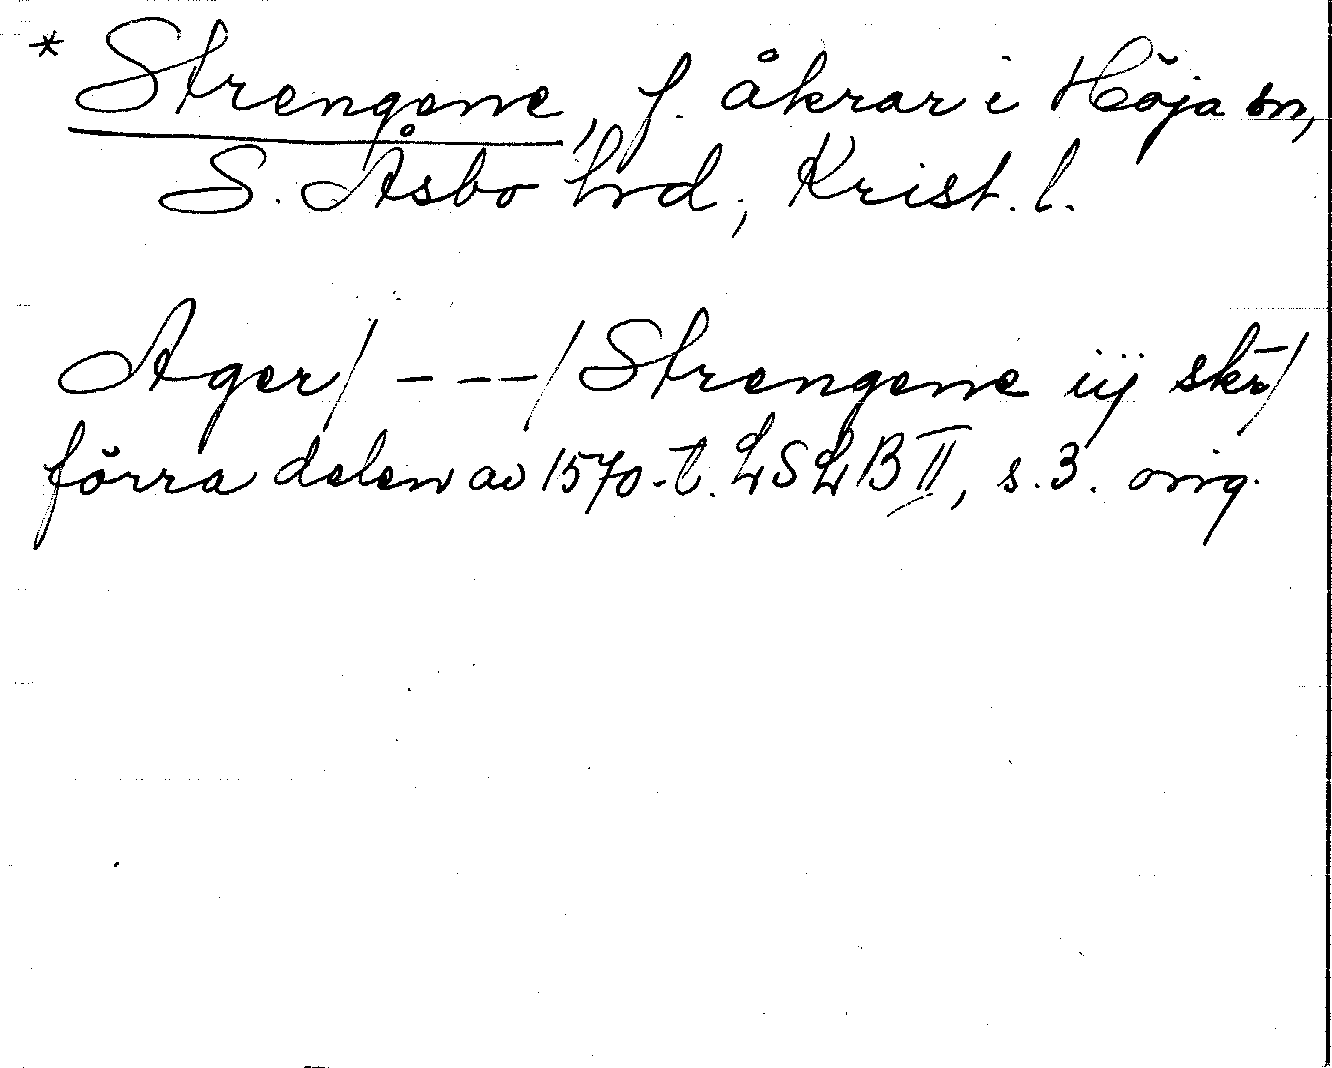 * Strengene, f. åkrar i Höja sn,
S. Åsbo hrd, Krist. l.
Ager/ - - - /Strengene iij skr̄/
förra delen av 1570-t. LSLB II, s. 3. orig.